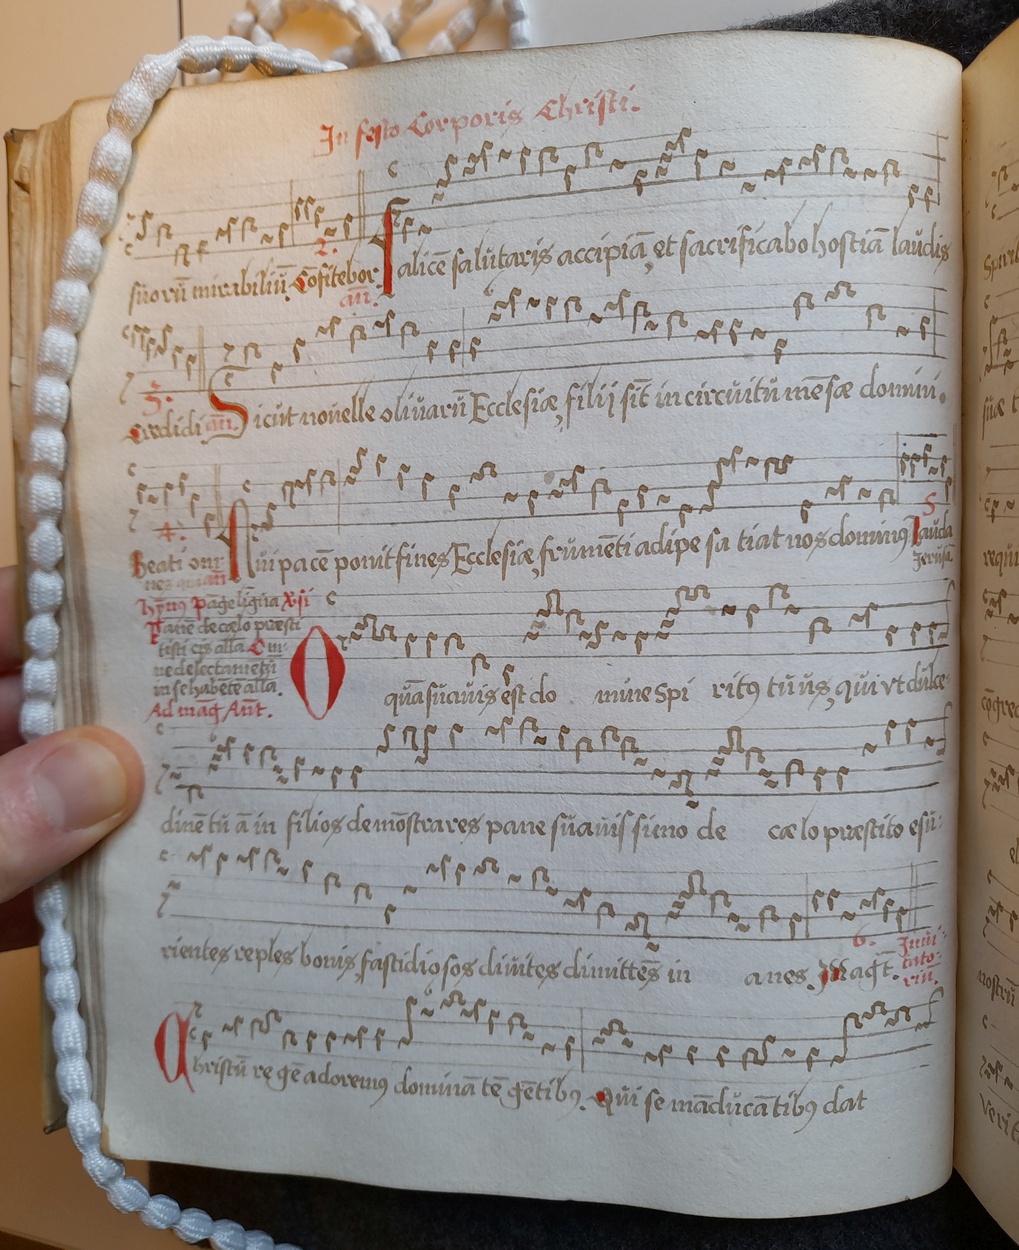 In festo Corporis Christi.
suorū mirabiliū. Cōfitebor. 2. añ. Calicē salutaris accipiā, et sacrificabo hostiā laudis
3. Credidi añ. Sicut novelle olivarū Ecclesiæ, filij sīt in circuitu mēsæ domini.
4. Beati om
nes
Qui pacē ponit fines Ecclesiæ, frumēti adipe sa tiat nos dominus 5 Lauda
Jerusā
Hȳnus Page ligna XII
Panē de cælo præsti
tisti eis alla. Om
ne delectamētū
in se habētē alla.
Ad mag Ant.
O quā suavis est do mine spi ritus tuus, qui vt dulce-
dinē tu ā in filios demōstrares pane suavissimo de cælo præstito esu-
rientes reples bonis, fastidiosos divites dimittēs in anes. 6. Magt. Invi-
tato-
riū.
Christū regē adoremus dominātē gētibus. Qui se māducātibus dat